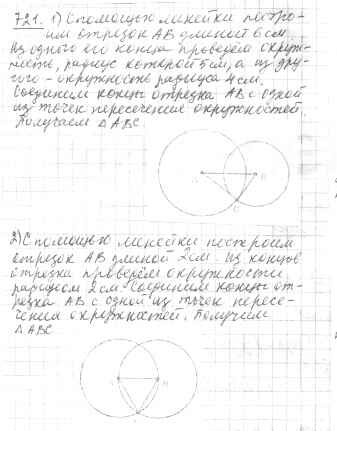 721. 1) С помощью линейки постро-
им отрезок AB длиной 6 см.
Из одного его конца проведём окруж-
ность, радиус которой 5 см, а из дру-
гого - окружность радиуса 4 см.
Соединим концы отрезка AB с одной
из точек пересечения окружностей.
Получаем △ABC.
A B
C
2) С помощью линейки построим
отрезок AB длиной 2 см. Из концов
отрезка проведём окружности
радиусом 2 см. Соединим концы от-
резка AB с одной из точек пересе-
чения окружностей. Получим
△ABC
A B
C